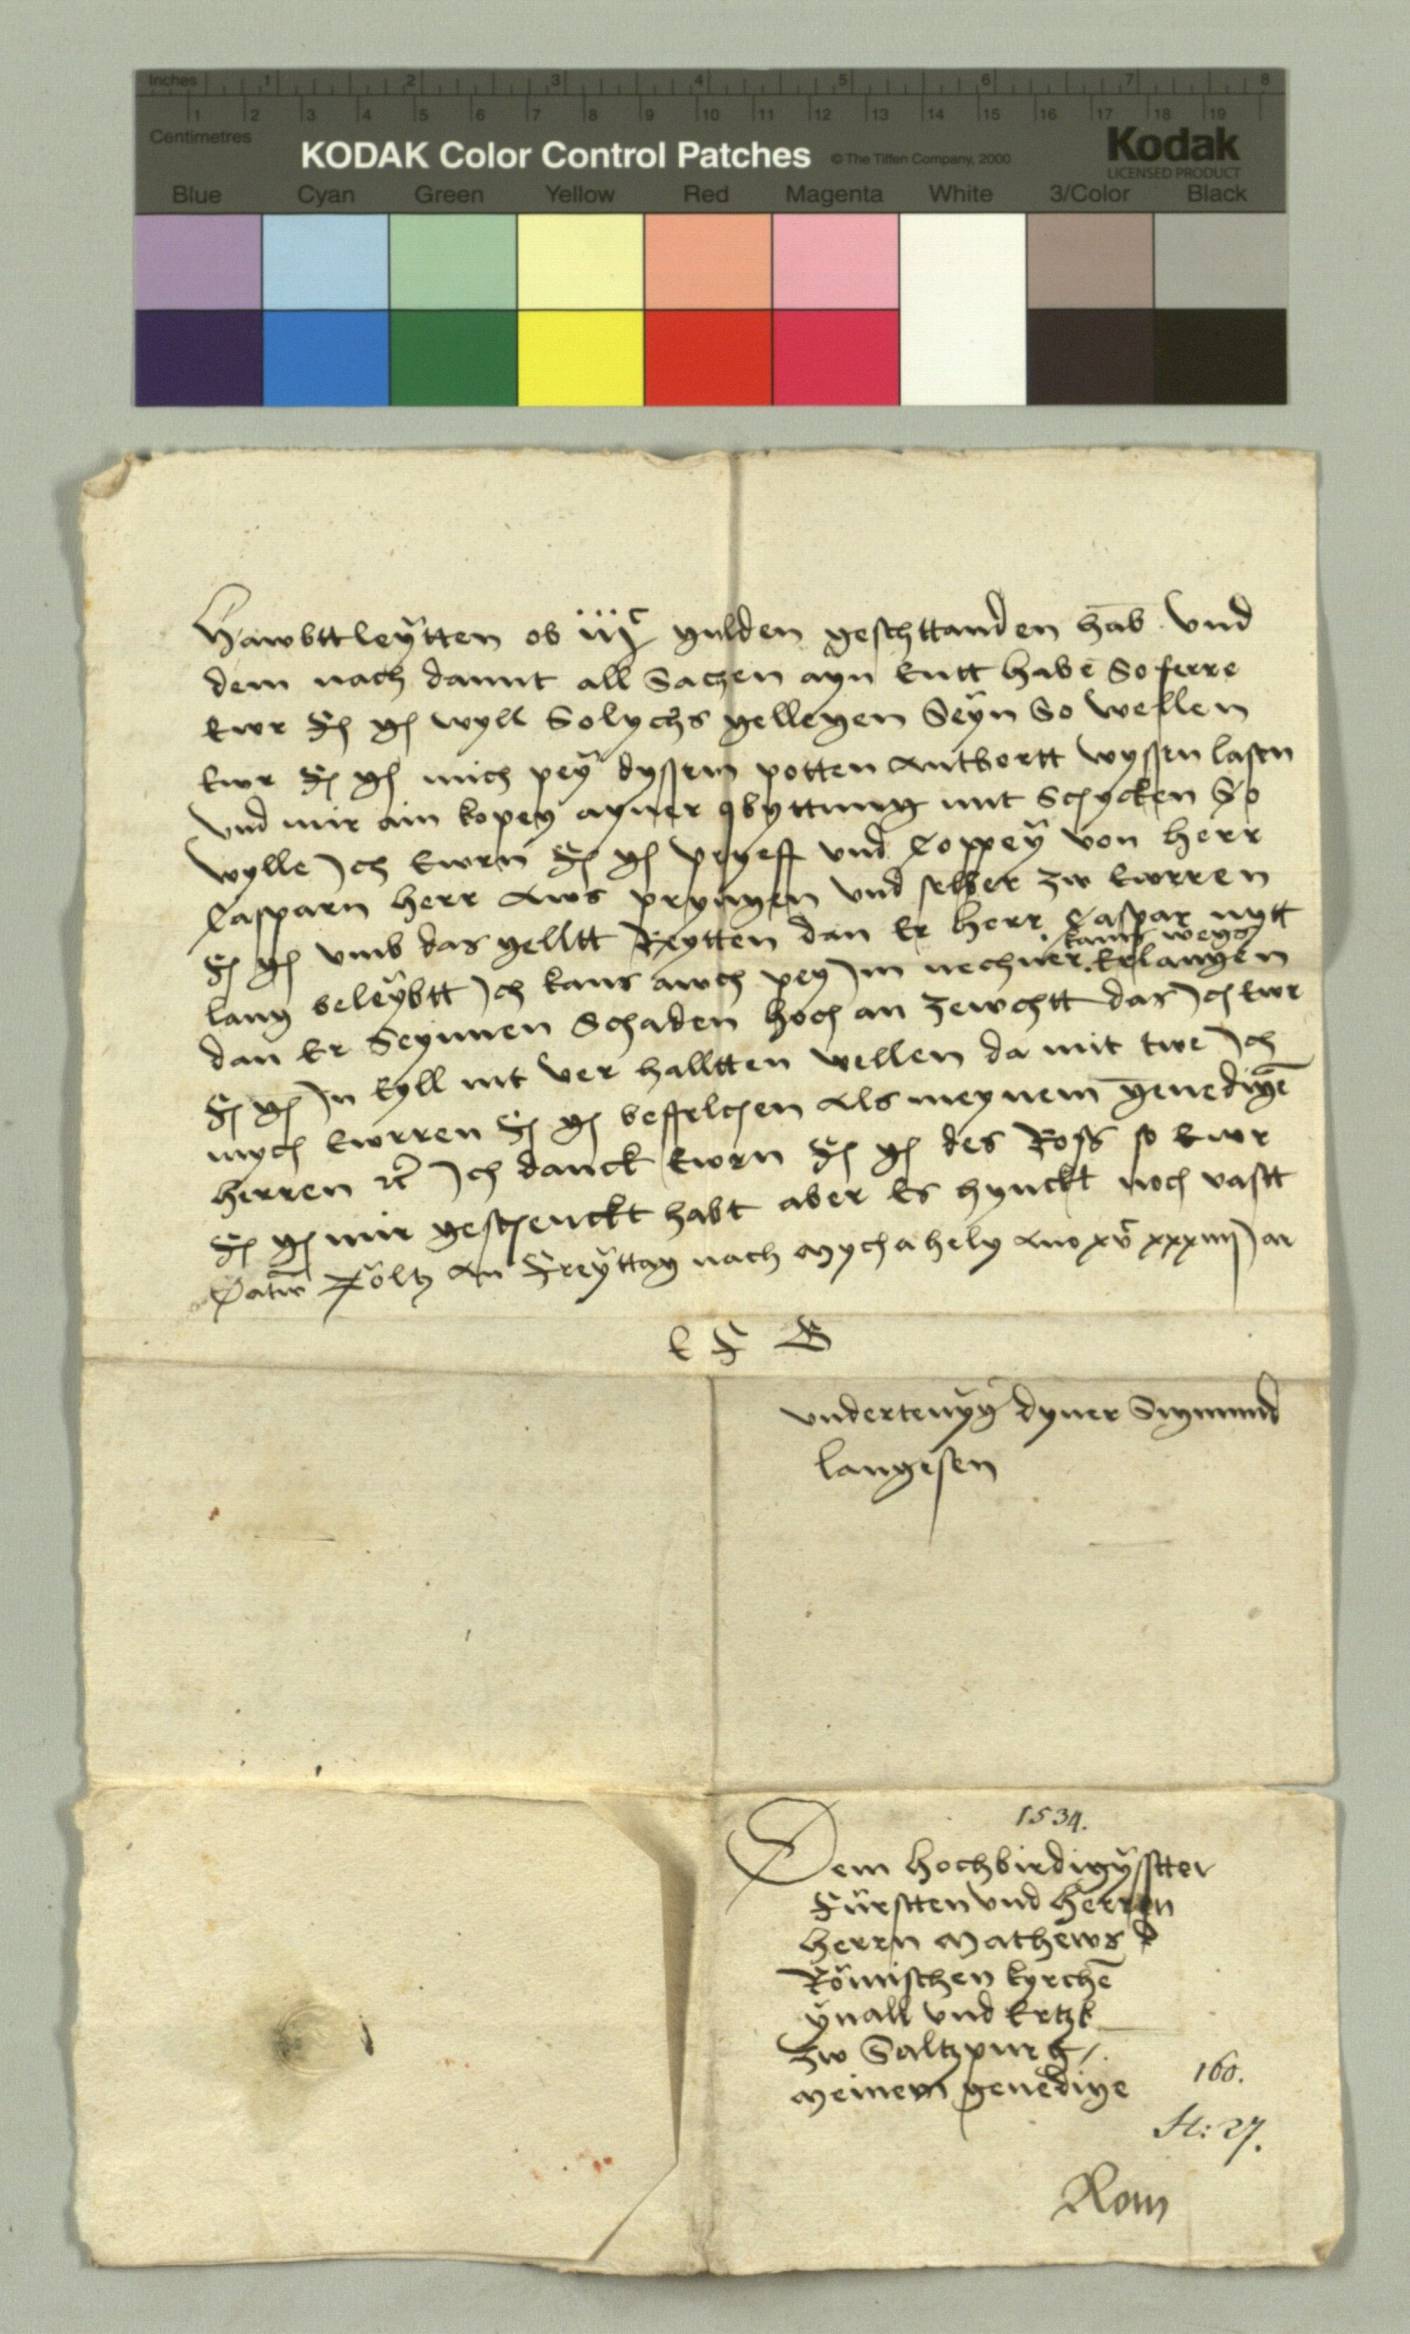 Inches 1 2 3 4 5 6 7 8
1 2 3 4 5 6 7 8 9 10 11 12 13 14 15 16 17 18 19
Centimetres
KODAK Color Control Patches © The Tiffen Company, 2000 Kodak
LICENSED PRODUCT
Blue Cyan Green Yellow Red Magenta White 3/Color Black
Hawbttleÿtten ob iiiᶜ gulden geschttanden hab Vnd
dem nach damit all Sachen ayn Entt habē So ferre
Ewr F g wyll Solychs gellegen Seÿn So wellen
Ewr F g mich peÿ dyssem potten Antbortt wyssen lasen
Vnd mir ain kopeÿ ayner qbyttung mit Schycken So
wylle Ich Ewrn F g pryeff vnd Coppeÿ von herr
Casparn herr Aws pryngen Vnd selber zw Ewrren
F g vmb das gelltt Reytten dan Er herr Caspar nytt
kains wegs
lang beleÿbtt Ich kans awch pey Im nechner Erlangen
dan Er Seynnen Schaden hoch an zewchtt das Ich Ewr
F g In Eyll nit ver halltten wellen da mit twe Ich
mych Ewrren F g beffelchen Als meynem genedigē
herren Ich danck Ewrn F g des Ross so Ewr
F g mir geschenckt habt aber Es hynckt noch vastt
Datū Föltz An Freÿttag nach Mychahely Ano xvᶜ xxxiiij Jar
E F G
vndertenÿg dyner Sigmund
langesen
1534.
Dem Hochbirdigÿstter
Fürstten Vnd Herren
Herrn Mathews d
Römischen kyrchē
ÿnall Vnd Ertzb
zw Saltzpurg
Meinem genedige
160.
St: 27.
Rom